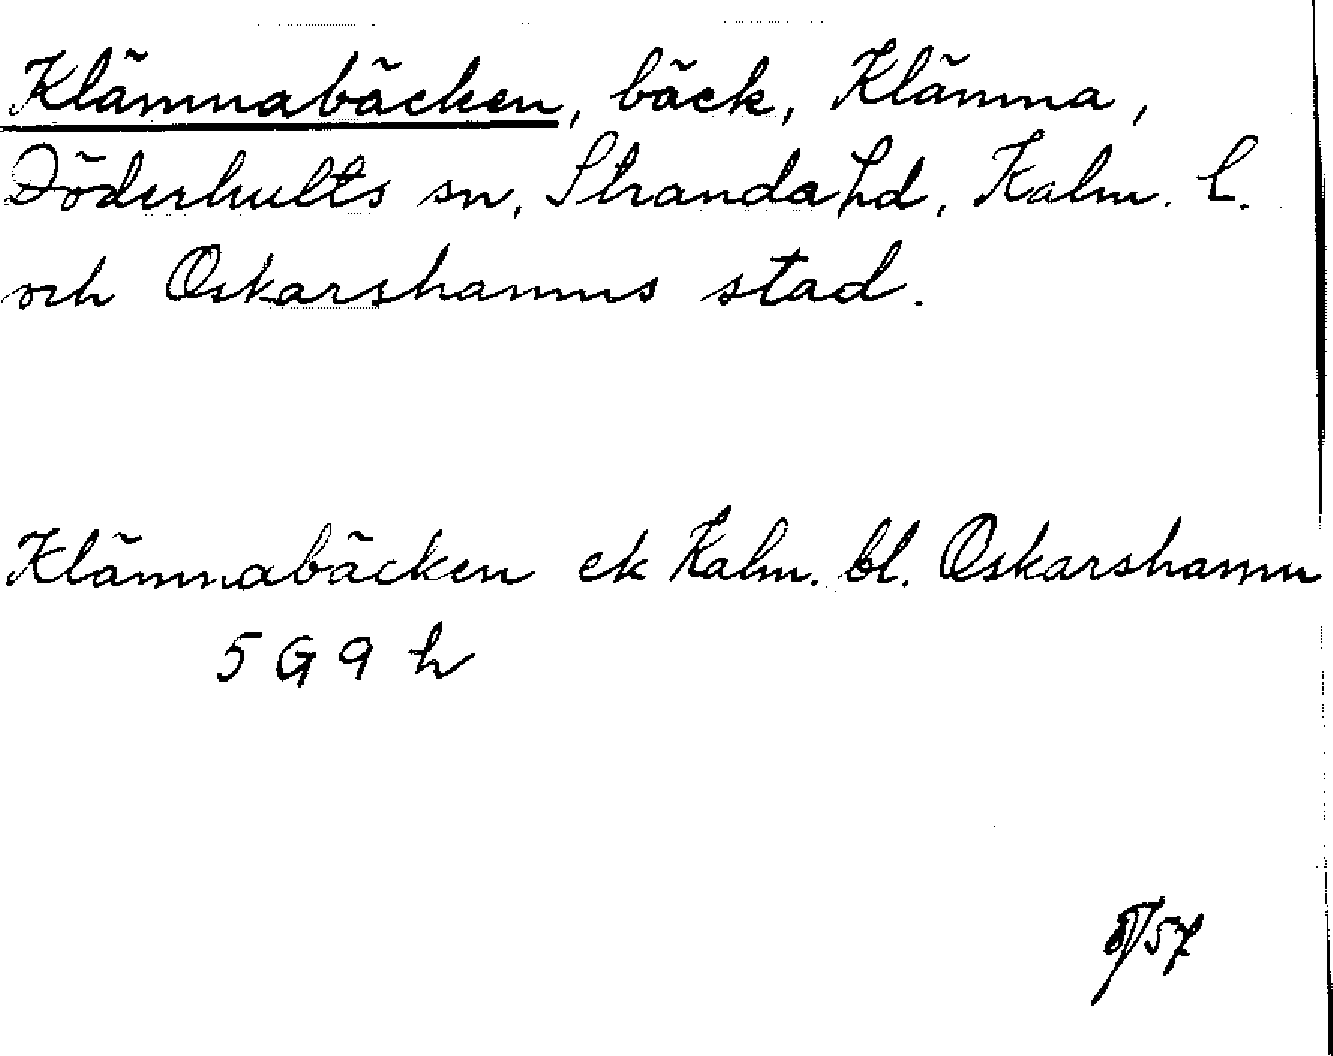 Klämnabäcken, bäck, Klämna,
Döderhults sn, Stranda hd, Kalm. l.
och Oskarshamns stad.
Klämnabäcken ek Kalm. bl. Oskarshamn
5 G 9 h